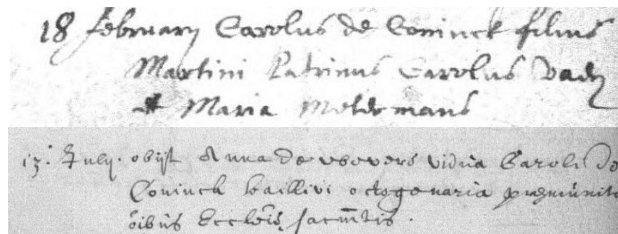 18 february Carolus de Coninck filius
Martini Patrinus Carolus
et Maria
13. July. obijt Anna de vidua Caroli de
Coninck baillivi octogenaria præmunit
oibus Eccl̄iæ sacm̄tis.